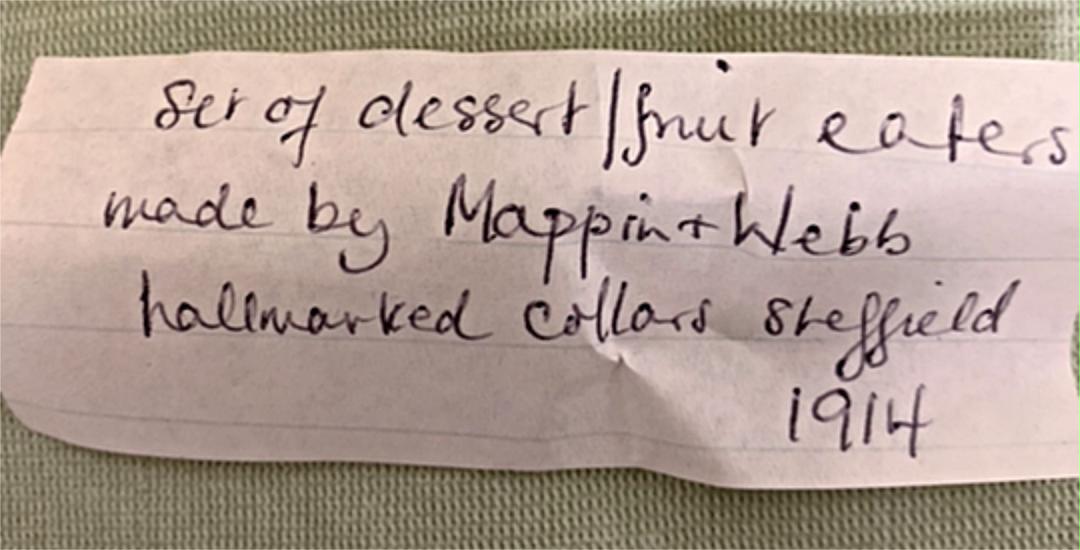 Set of dessert/fruit eaters
made by Mappin + Webb
hallmarked collars Sheffield
1914